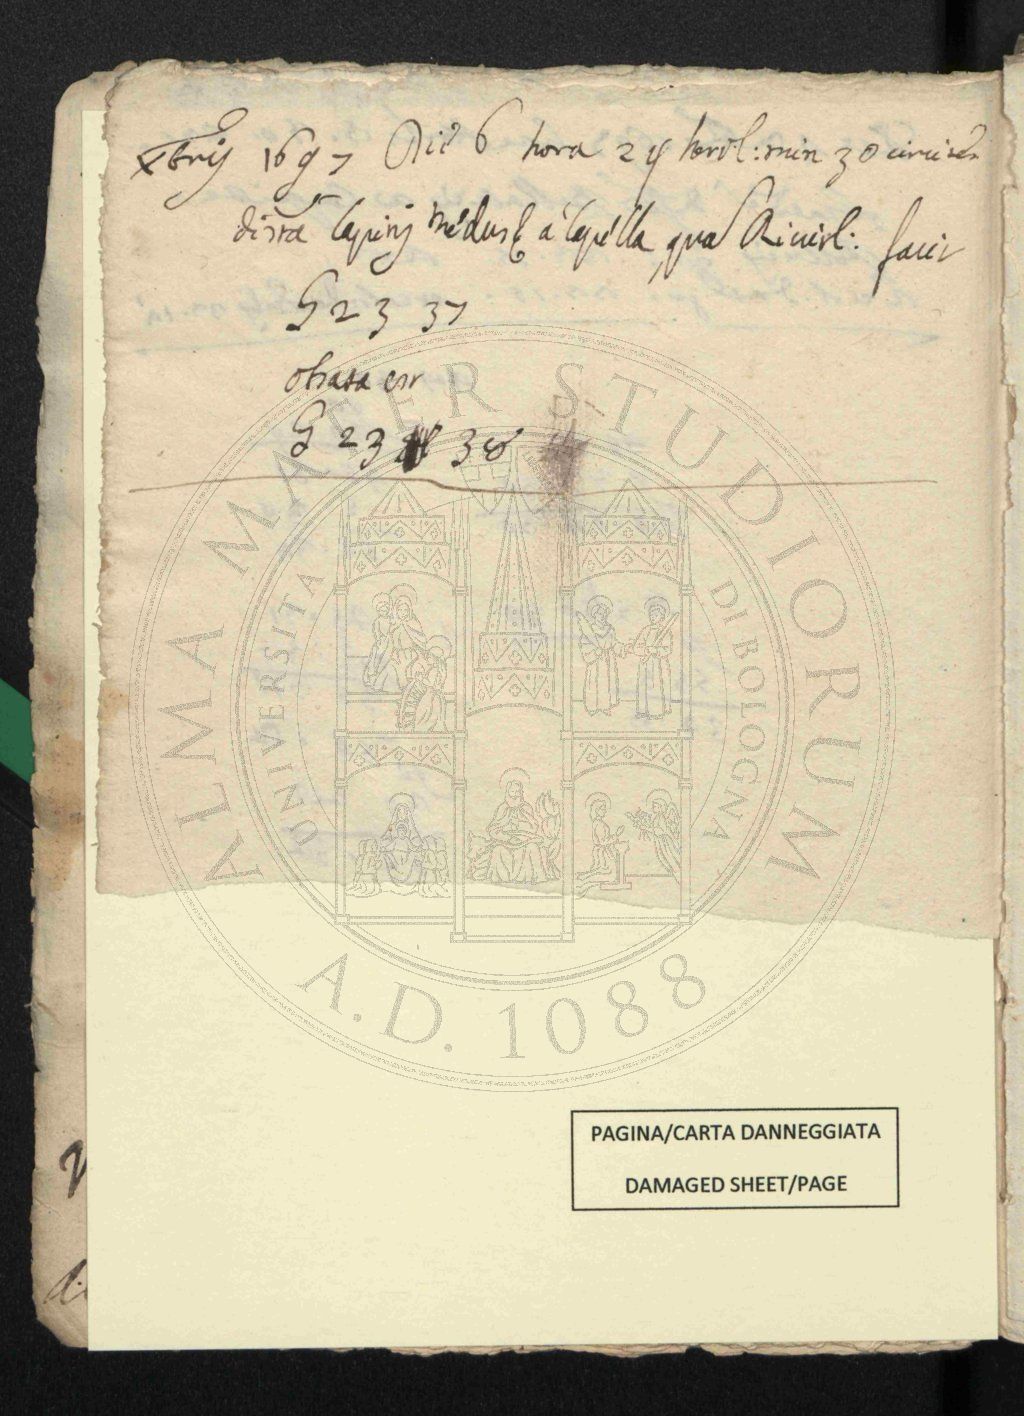 Xbrij 1697 Die 6 hora 24 horol: min 30 circiter
distā Capitis Medusę a Capella, qua Rivirol: facit
G 23 37
obsata est
G 23 38
ALMA MATER STUDIORUM
UNIVERSITA DI BOLOGNA
A.D. 1088
PAGINA/CARTA DANNEGGIATA
DAMAGED SHEET/PAGE